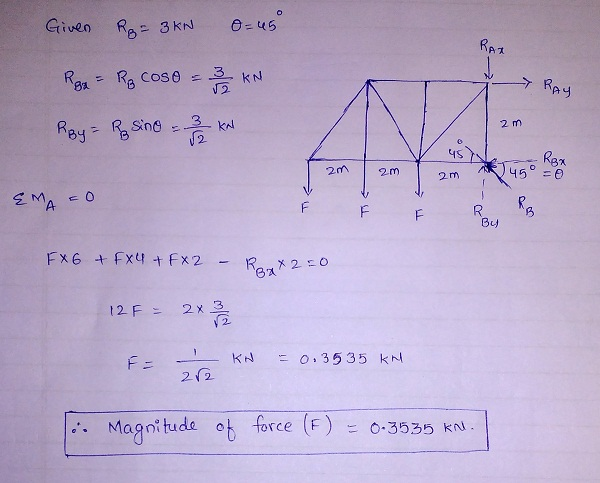 Given R_B = 3 KN θ = 45°
R_Bx = R_B cosθ = 3/√2 KN
R_By = R_B sinθ = 3/√2 KN
ΣM_A = 0
R_Ax
R_Ay
2m
45°
R_Bx
45° = θ
2m 2m 2m
F F F R_By R_B
F×6 + F×4 + F×2 - R_Bx × 2 = 0
12F = 2 × 3/√2
F = 1/2√2 KN = 0.3535 KN
∴ Magnitude of force (F) = 0.3535 KN.